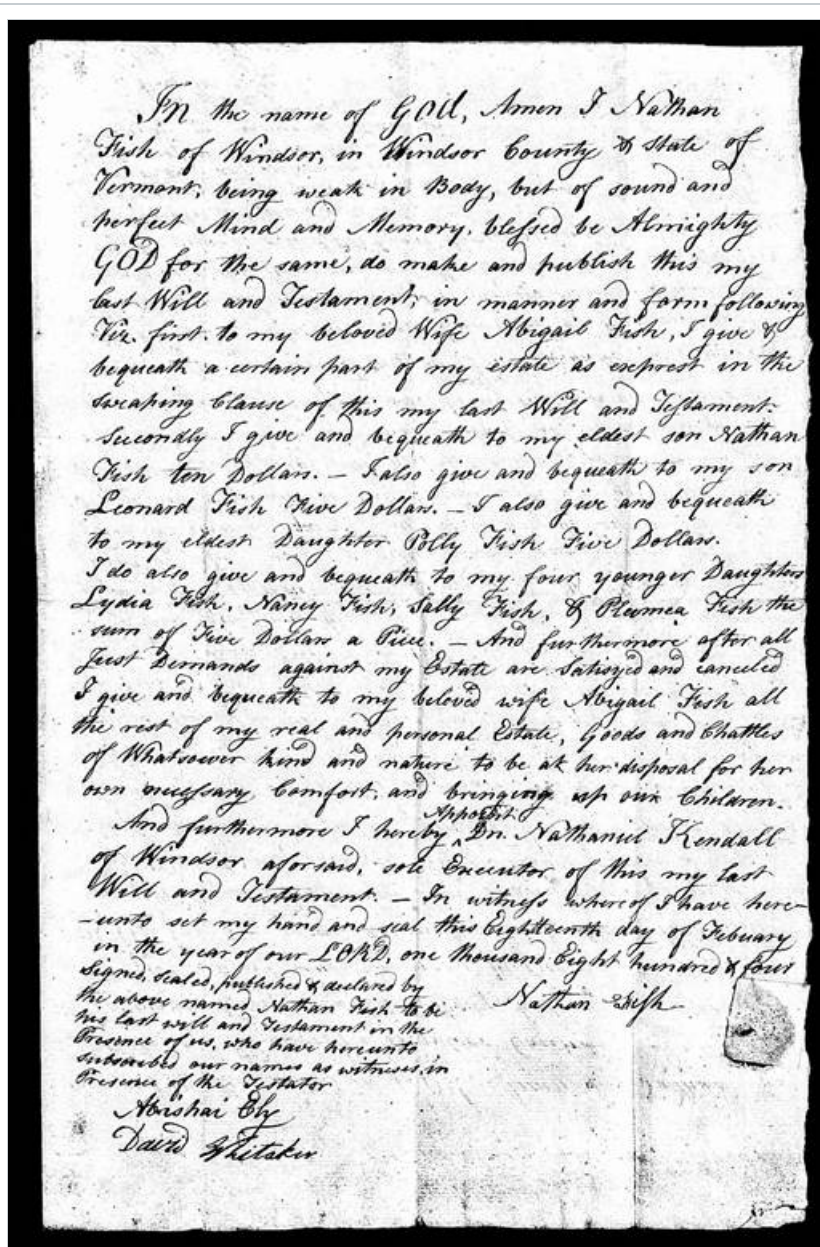 In the name of GOD, Amen I Nathan
Fish of Windsor, in Windsor County & State of
Vermont, being weak in Body, but of sound and
perfect Mind and Memory, blessed be Almighty
GOD for the same, do make and publish this my
last Will and Testament; in manner and form following
Viz. first. to my beloved Wife Abigail Fish, I give &
bequeath a certain part of my estate as exprest in the
sweaping Clause of this my last Will and Testament.
Secondly I give and bequeath to my eldest son Nathan
Fish ten Dollars. – I also give and bequeath to my son
Leonard Fish Five Dollars. – I also give and bequeath
to my eldest Daughter Polly Fish Five Dollars.
I do also give and bequeath to my four younger Daughters
Lydia Fish, Nancy Fish, Sally Fish, & Plumea Fish the
sum of Five Dollars a Piece. – And furthermore after all
Just Demands against my Estate are Satisyed and canceled
I give and bequeath to my beloved wife Abigail Fish all
the rest of my real and personal Estate, Goods and Chattles
of Whatsoever kind and nature to be at her disposal for her
own necessary Comfort, and bringing up our Children.
Appoint
And furthermore I hereby ^ Dn. Nathaniel Kendall
of Windsor aforsaid, sole Executor of this my last
Will and Testament. – In witness whereof I have here-
-unto set my hand and seal this Eighteenth day of Febuary
in the year of our LORD, one thousand Eight hundred & four
Signed, sealed, published & declared by
the above named Nathan Fish to be
his last will and Testament in the
Presence of us, who have hereunto
subscribed our names as witnesses, in
Presence of the Testator
Nathan Fish
Abishai Ely
David Whitaker